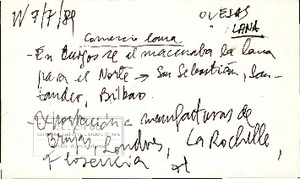 W/7/7/89
OVEJAS
LANA
Comercio lana
- En Burgos se almacenaba la lana
para el Norte → San Sebastián, San-
tander, Bilbao.
- Exportación a manufacturas de
Brujas, Londres, La Rochelle,
Florencia